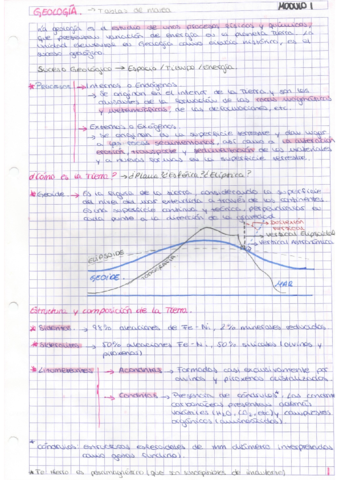 GEOLOGÍA. → Tareas de mar
MÓDULO 1
La geología es el estudio de unos procesos físicos y químicos
que presentan variación de energía en el planeta Tierra. La
unidad elemental en geología como ciencia histórica, es el
suceso geológico.
Suceso Geológico → Espacio / Tiempo / Energía
* Procesos → Internos o Endógenos
→ Se originan en el interior de la Tierra y son los
causantes de la formación de las rocas magmáticas
y metamórficas, de las deformaciones etc.
→ Externos o Exógenos
→ Se originan en la superficie terrestre y dan lugar
a las rocas sedimentarias, así como a la
transporte y sedimentación de los materiales
y a nuevas formas en la superficie terrestre.
¿Cómo es la Tierra? → ¿Plana? ¿Esférica? ¿Elíptica?
* Geoide → Es la figura de la Tierra considerando la superficie
del nivel del mar extendida a través de los continentes.
Es una superficie continua y teórica, perpendicular en
cada punto a la dirección de la gravedad.
Desviación
vertical
Vertical Elipsoidal
Vertical Astronómica
ELIPSOIDE
TOPOGRAFÍA
GEOIDE
MAR
Estructura y composición de la Tierra.
* Sideritos → 98% aleaciones de Fe-Ni, 2% minerales
* → 50% aleaciones Fe-Ni, 50% silicatos (olivinos y
piroxenos)
* → Acondritas → Formados casi exclusivamente por
olivinos y piroxenos
→ Condritas → Presencia de cóndrulos*. Las condritas
carbonáceas presentan además
volátiles (H₂O, CO₂, etc) y compuestos
orgánicos (aminoácidos)
* Cóndrulos: estructuras esferoidales de mm diámetro interpretadas
como gotas fundidas.